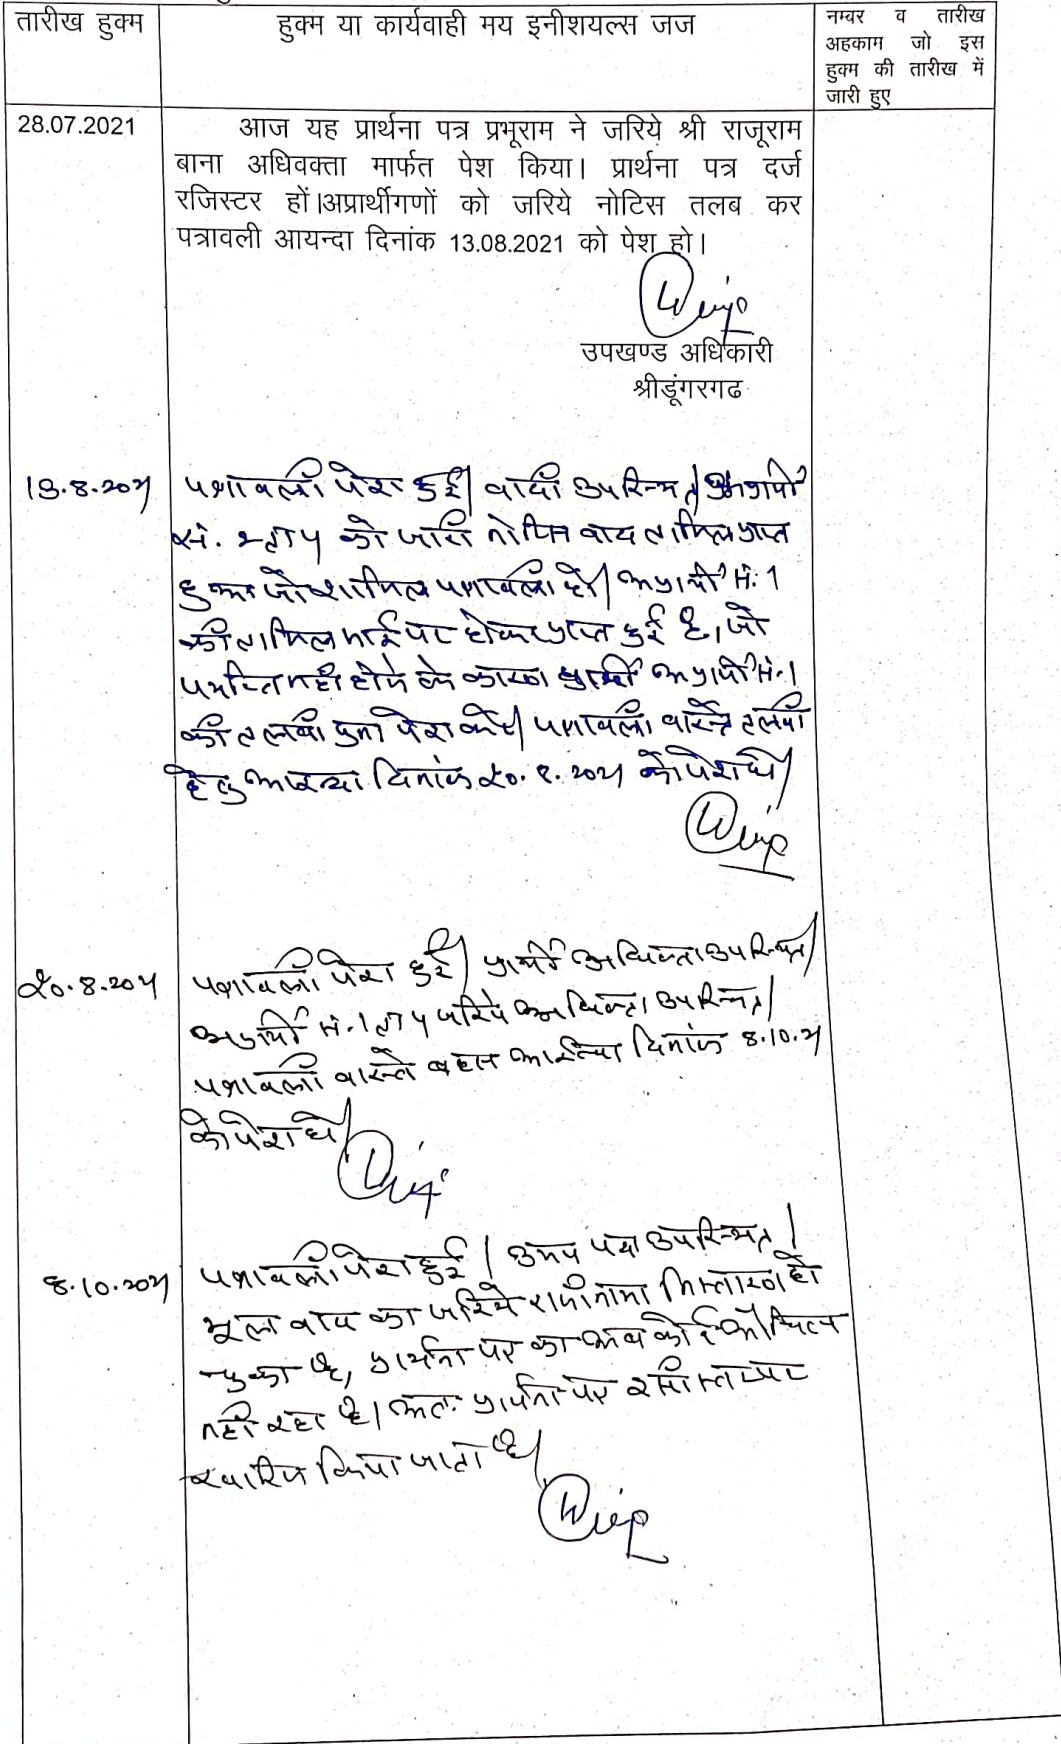 तारीख हुक्म
हुक्म या कार्यवाही मय इनीशयल्स जज
नम्बर व तारीख
अहकाम जो इस
हुक्म की तारीख में
जारी हुए
28.07.2021
आज यह प्रार्थना पत्र प्रभूराम ने जरिये श्री राजूराम
बाना अधिवक्ता मार्फत पेश किया। प्रार्थना पत्र दर्ज
रजिस्टर हों।अप्रार्थीगणों को जरिये नोटिस तलब कर
पत्रावली आयन्दा दिनांक 13.08.2021 को पेश हो।
उपखण्ड अधिकारी
श्रीडूंगरगढ
13.8.2021
पत्रावली पेश हुई। वादी उपस्थित। अप्रार्थी
सं. 2 ता 4 को जारी नोटिस बाद तामिल प्राप्त
हुआ जो शामिल पत्रावली है। अप्रार्थी सं. 1
की तामिल भाई पर होकर प्राप्त हुई है, जो
पर्याप्त नही होने के कारण प्रार्थी अप्रार्थी सं. 1
की तलबी पुनः पेश करे। पत्रावली वास्ते तलबी
हेतु आइन्दा दिनांक 20.8.2021 को पेश हो।
20.8.2021
पत्रावली पेश हुई। प्रार्थी अधिवक्ता उपस्थित।
अप्रार्थी सं. 1 ता 4 जरिये अधिवक्ता उपस्थित।
पत्रावली वास्ते बहस आइन्दा दिनांक 8.10.21
को पेश हो।
8.10.2021
पत्रावली पेश हुई। उभय पक्ष उपस्थित।
मूल वाद का जरिये राजीनामा निस्तारण हो
चुका है, प्रार्थना पत्र का अब कोई औचित्य
नही रहा है। अतः प्रार्थना पत्र इसी स्तर पर
खारिज किया जाता है।